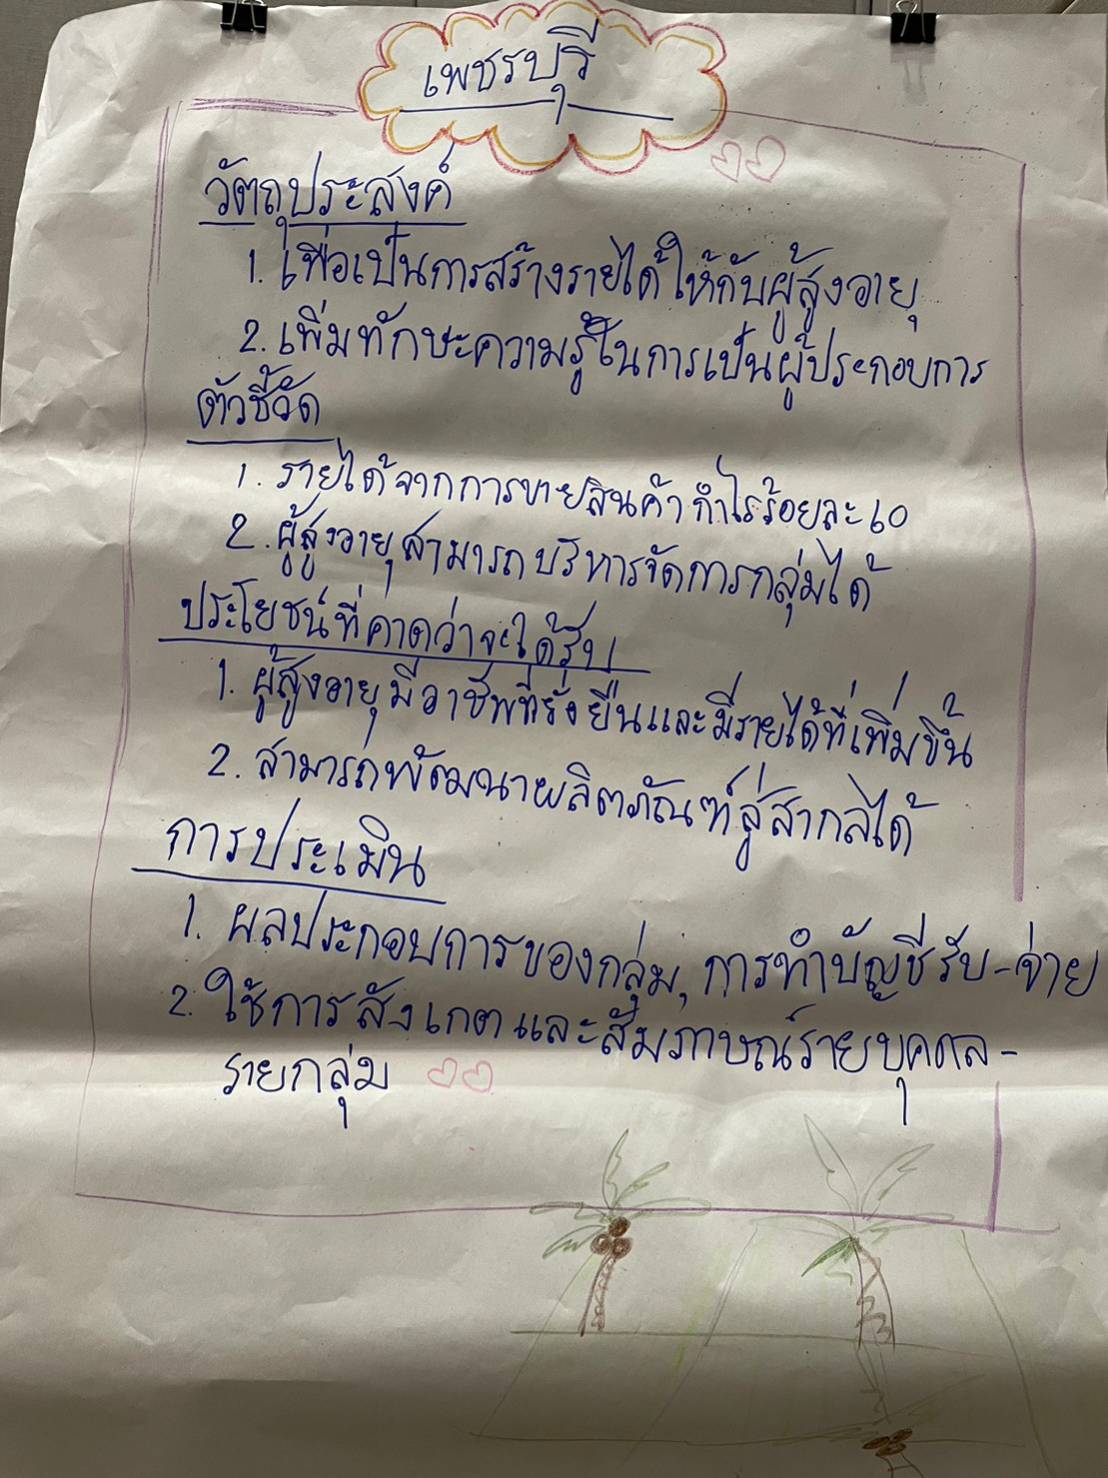 เพชรบุรี
วัตถุประสงค์
1. เพื่อเป็นการสร้างรายได้ให้กับผู้สูงอายุ
2. เพิ่มทักษะความรู้ในการเป็นผู้ประกอบการ
ตัวชี้วัด
1. รายได้จากการขายสินค้า กำไรร้อยละ 60
2. ผู้สูงอายุสามารถบริหารจัดการกลุ่มได้
ประโยชน์ที่คาดว่าจะได้รับ
1. ผู้สูงอายุมีอาชีพที่ยั่งยืนและมีรายได้ที่เพิ่มขึ้น
2. สามารถพัฒนาผลิตภัณฑ์สู่สากลได้
การประเมิน
1. ผลประกอบการของกลุ่ม, การทำบัญชีรับ-จ่าย
2. ใช้การสังเกตและสัมภาษณ์รายบุคคล-
รายกลุ่ม